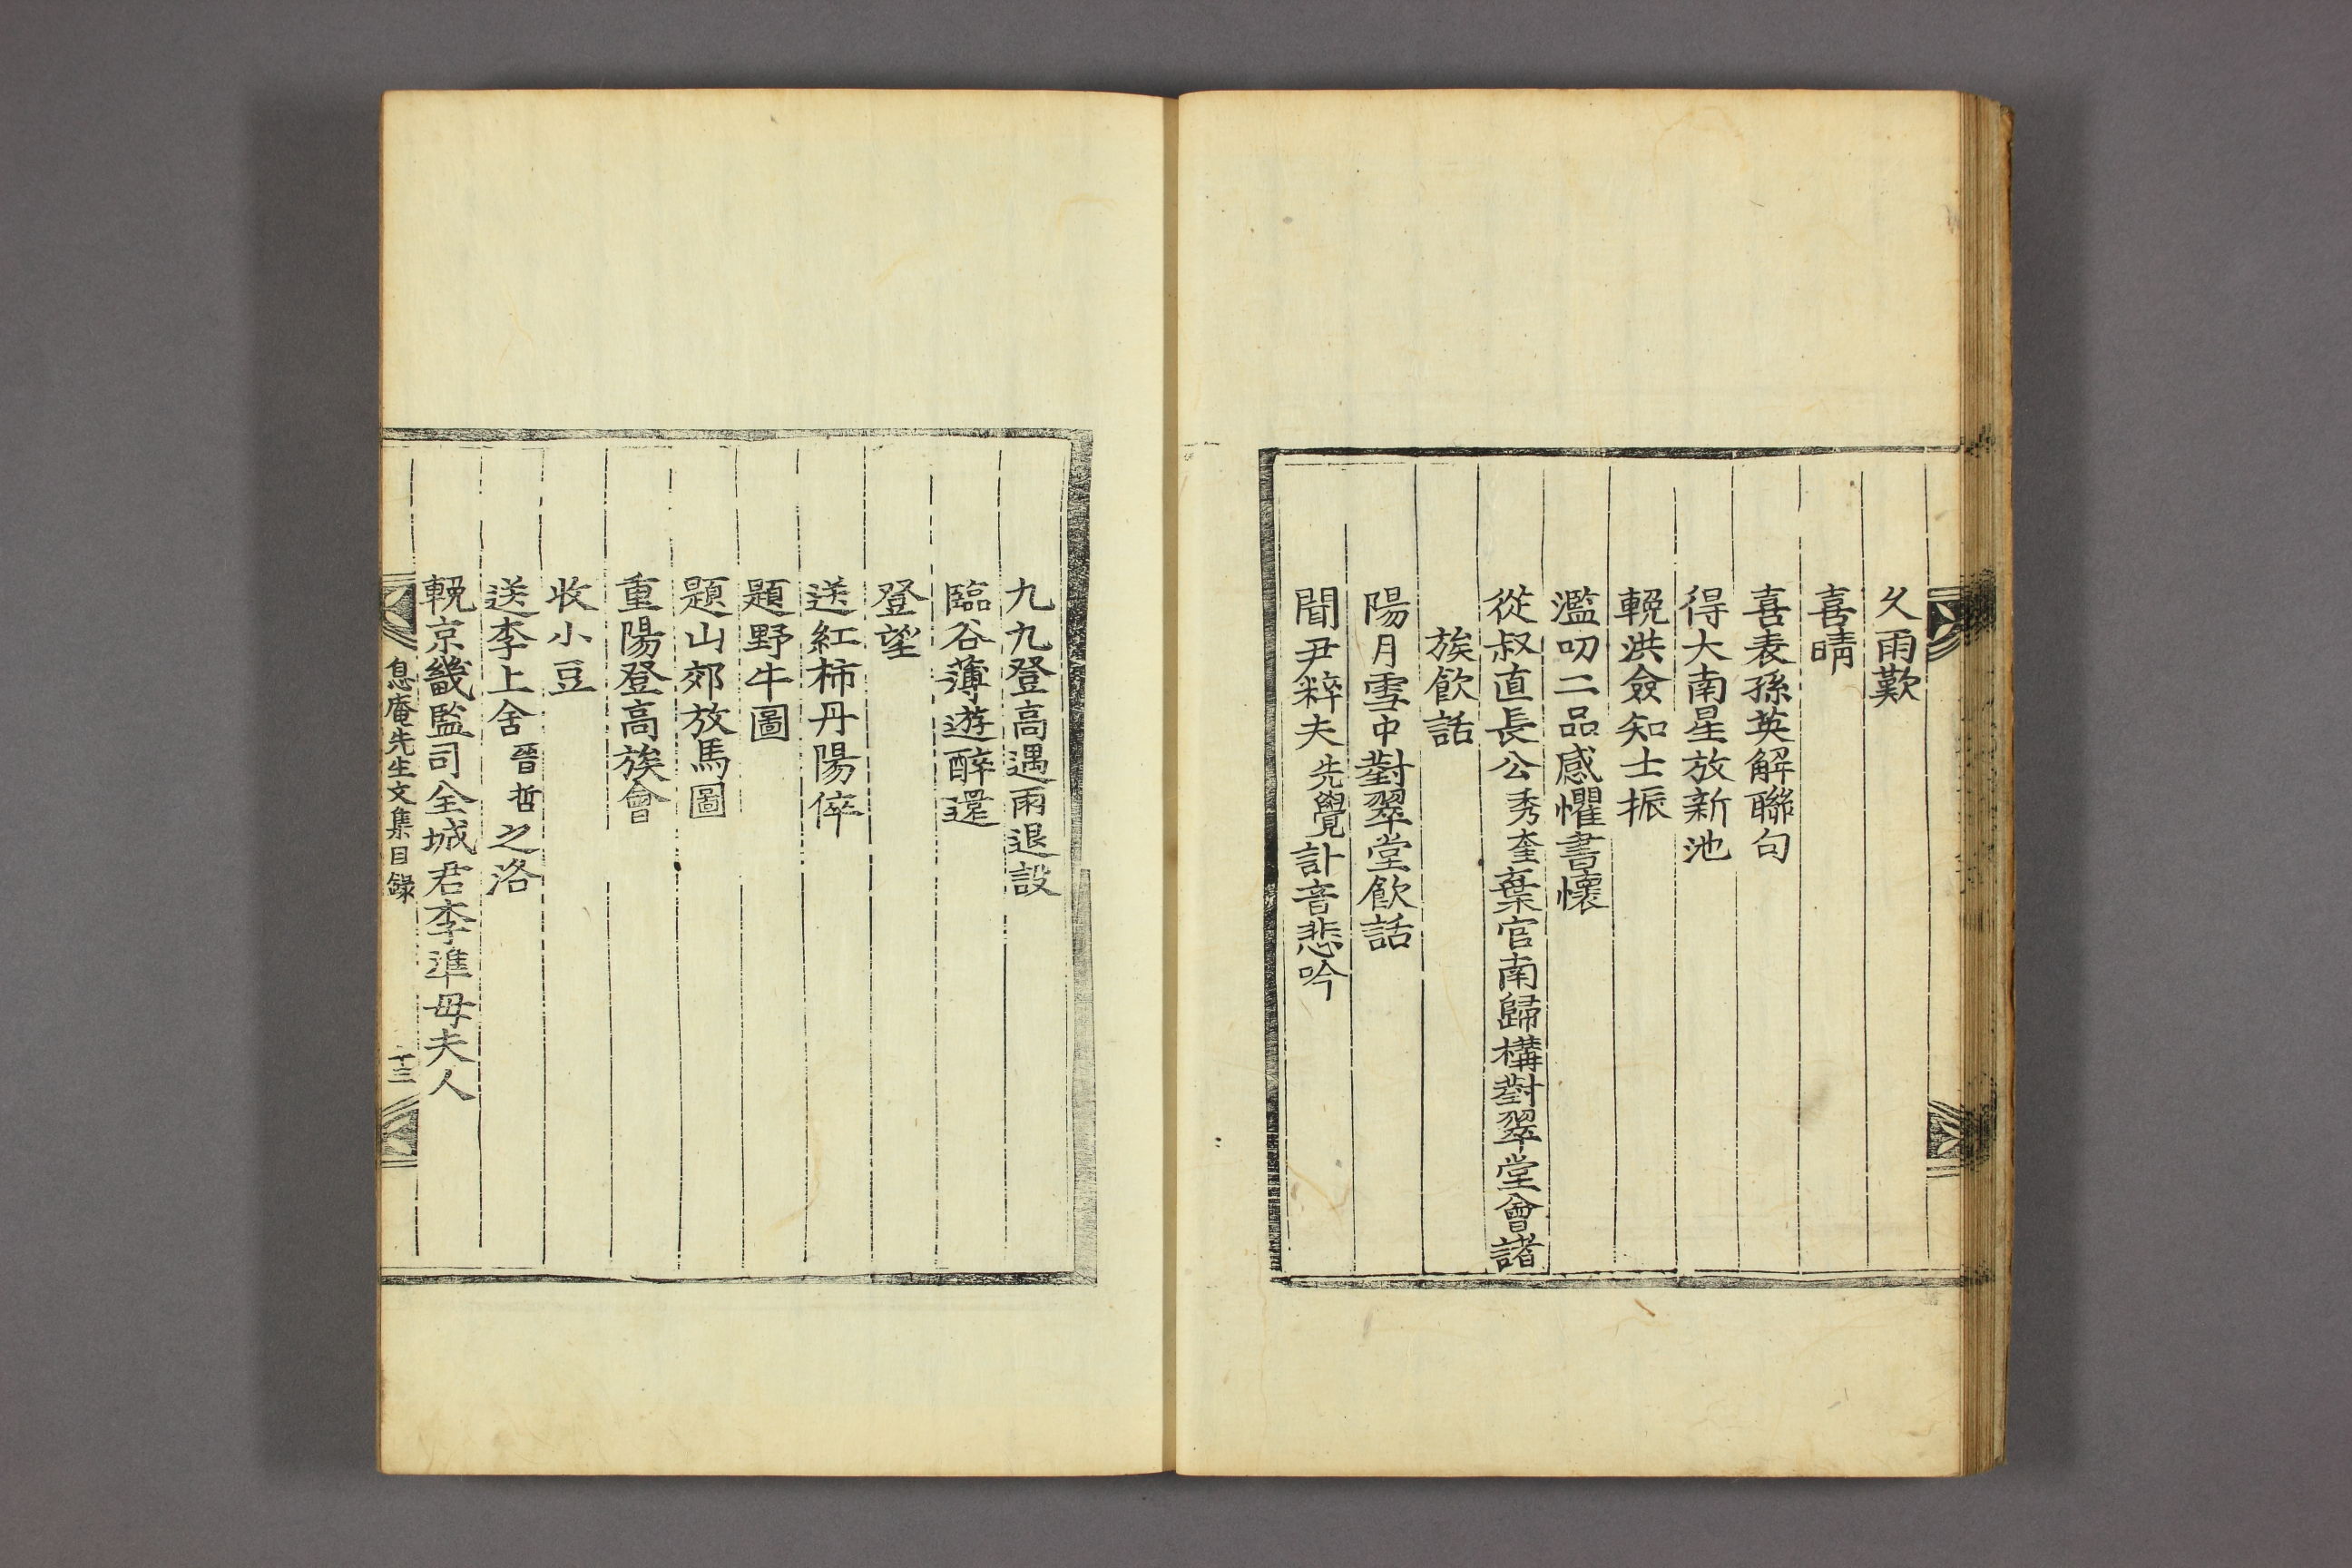 久雨歎
喜晴
喜表孫英解聯句
得大南星放新池
輓洪僉知士振
濫叨二品感懼書懷
從叔直長公秀奎棄官南歸構對翠堂會諸
族飮話
陽月雪中對翠堂飮話
聞尹粹夫先覺訃音悲吟
九九登高遇雨退設
臨谷薄遊醉還
登望
送紅柿丹陽倅
題野牛圖
題山郊放馬圖
重陽登高族會
收小豆
送李上舍晉哲之洛
輓京畿監司全城君李準母夫人
息庵先生文集目錄 十三